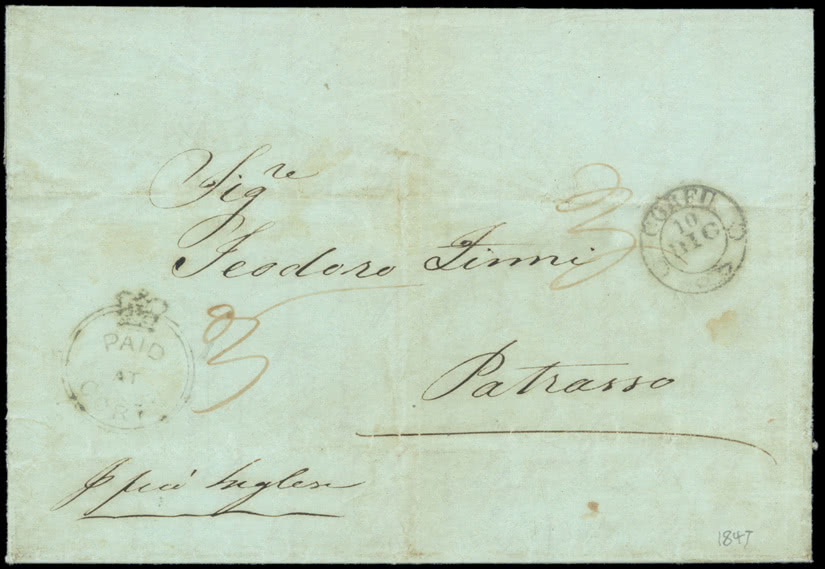 Sig^re
Teodoro Zinni
Patrasso
CORFU
10
DIC
PAID
AT
CORFU
Inglese
3
3
1847